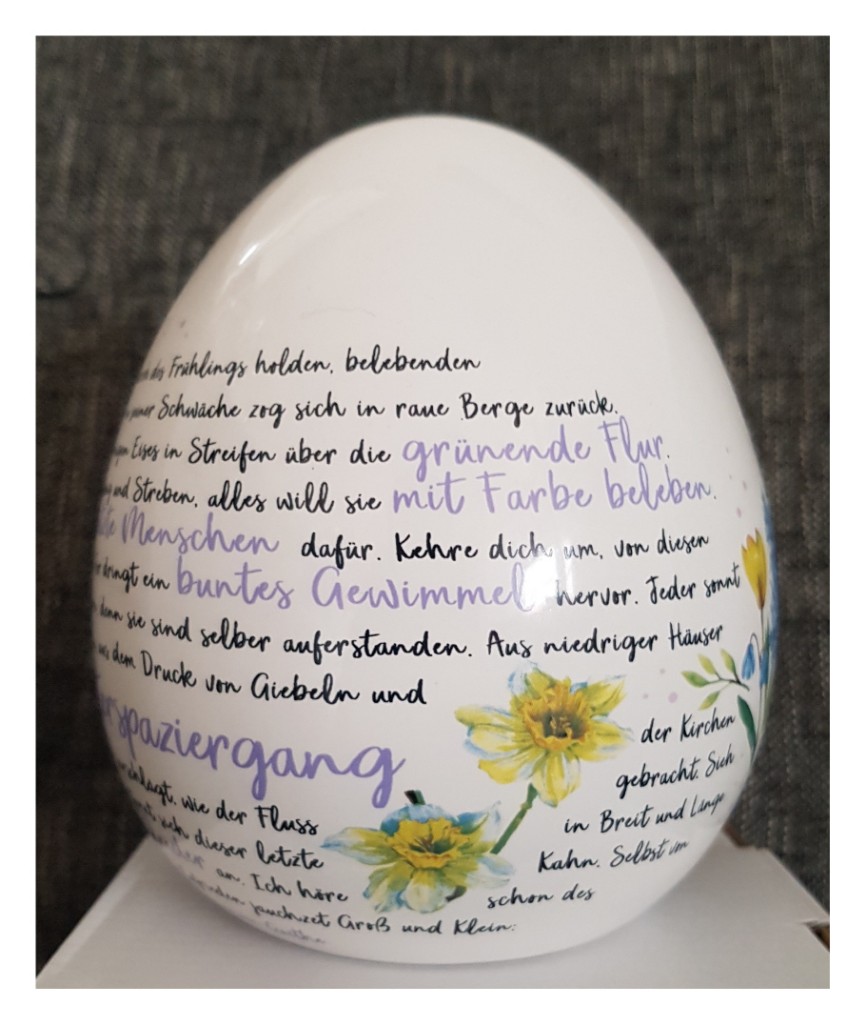 des Frühlings holden, belebenden
Schwäche zog sich in raue Berge zurück.
Eises in Streifen über die grünende Flur.
und Streben, alles will sie mit Farbe beleben.
Menschen dafür. Kehre dich um, von diesen
dringt ein buntes Gewimmel hervor. Jeder sonnt
denn sie sind selber auferstanden. Aus niedriger Häuser
aus dem Druck von Giebeln und
spaziergang
der Kirchen
gebracht. Sieh
wie der Fluss in Breit und Länge
sich dieser letzte Kahn. Selbst von
an. Ich höre schon des
jauchzet Groß und Klein: